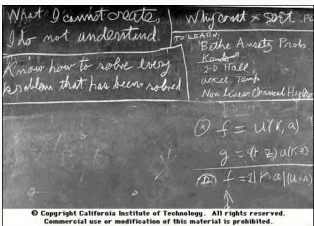 What I cannot create,
I do not understand.
Know how to solve every
problem that has been solved
Why const × sort. PG
TO LEARN:
Bethe Ansatz Probs.
Kondo
2-D Hall
accel. Temp
Non linear Classical Hydro
f = u(r, a)
g =
f = 2|r·a|(u·a)
© Copyright California Institute of Technology. All rights reserved.
Commercial use or modification of this material is prohibited.